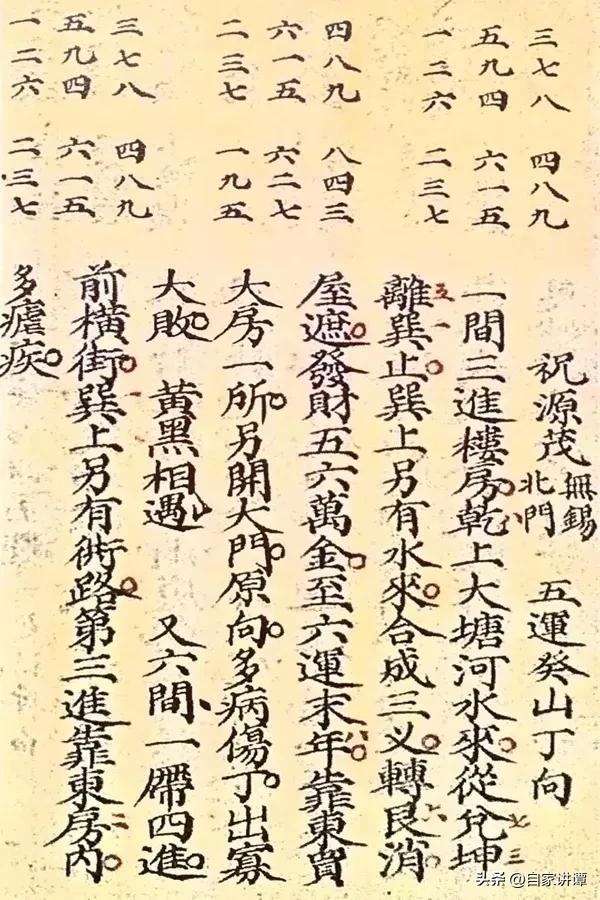 三七八 四八九
五九四 六一五
一二六 二三七
四八九 八四三
六一五 六二七
二三七 一九五
三七八 四八九
五九四 六一五
一二六 二三七
祝源茂 無錫北門 五運癸山丁向
一間三進樓房。乾八上大塘河水來。從兌七坤三
離五巽一止。巽上另有水來。合成三义。轉艮六消。
屋遮。發財五六萬金。至六運末年。八靠東買
大房一所。另開大門。原向。多病傷丁。出寡
大敗。 黃黑相遇 又六間一帶四進。
前橫街。巽一上另有街路。第三進靠東房二內。
多瘧疾。
头条 @自家讲谭